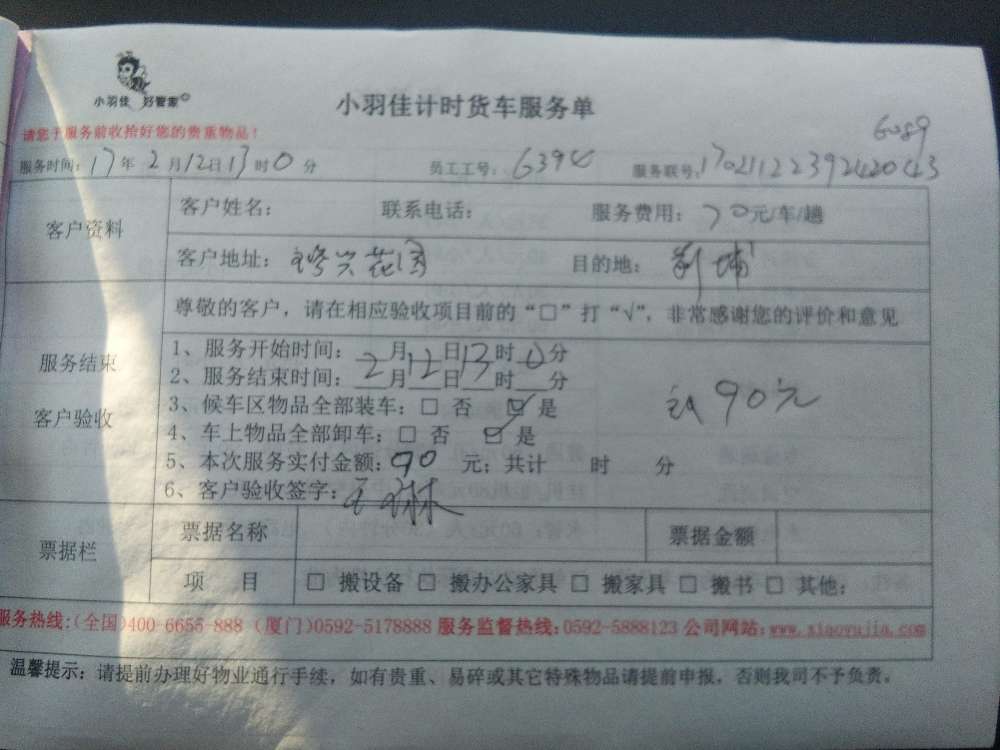 小羽佳 好管家
小羽佳计时货车服务单
6089
请您于服务前收拾好您的贵重物品！
服务时间：17年2月12日13时0分 员工工号：6394 服务联号：
客户资料
客户姓名： 联系电话： 服务费用：70元/车/趟
客户地址：兴花园 目的地：
服务结束
客户验收
尊敬的客户，请在相应验收项目前的“□”打“√”，非常感谢您的评价和意见
1、服务开始时间：2月12日13时0分
2、服务结束时间：__月__日__时__分
3、候车区物品全部装车：□ 否 ☑ 是
4、车上物品全部卸车：□ 否 ☑ 是
5、本次服务实付金额：90 元；共计 时 分
6、客户验收签字：王琳
90元
票据栏
票据名称 票据金额
项 目 □ 搬设备 □ 搬办公家具 □ 搬家具 □ 搬书 □ 其他：
服务热线：（全国）400-6655-888（厦门）0592-5178888 服务监督热线：0592-5888123 公司网站：www.xiaoyujia.com
温馨提示：请提前办理好物业通行手续，如有贵重、易碎或其它特殊物品请提前申报，否则我司不予负责。